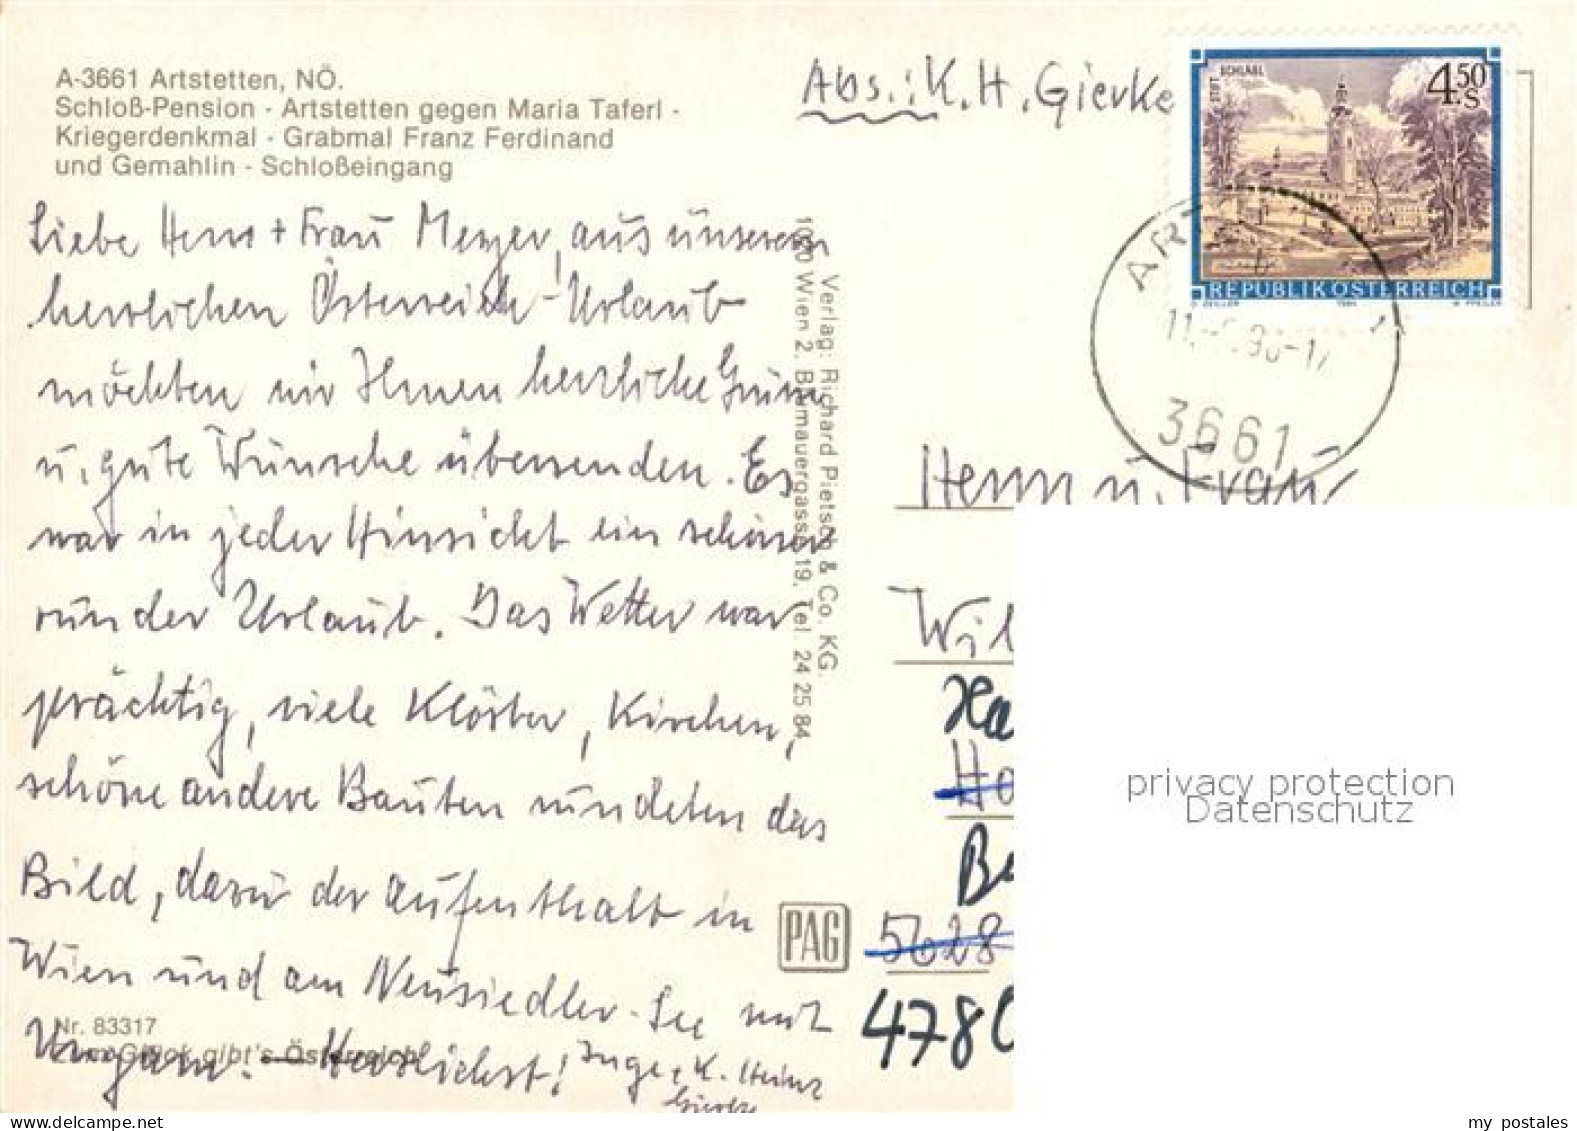 A-3661 Artstetten, NÖ.
Schloß-Pension - Artstetten gegen Maria Taferl -
Kriegerdenkmal - Grabmal Franz Ferdinand
und Gemahlin - Schloßeingang
Abs.: K. H. Gierke
STIFT SCHLÄGL
4.50
S
REPUBLIK ÖSTERREICH
ART
3661
Liebe Herr + Frau Meyer, aus unserem
herrlichen Österreich-Urlaub
möchten wir Ihnen herzliche Grüße
u. gute Wünsche übersenden. Es
war in jeder Hinsicht ein schöner
runder Urlaub. Das Wetter war
prächtig, viele Klöster, Kirchen,
schöne andere Bauten rundeten das
Bild, dazu der Aufenthalt in
Wien und am Neusiedler-See mit
Ungarn. - Herzlichst! Inge + K. Heinz
Gierke
Verlag: Richard Pietsch & Co. KG.
Wien 2. 19, Tel. 24 25 84
Herrn u. Frau
Wil
Ha
Ho
Be
5628
4780
PAG
Nr. 83317
Zum Glück gibt's Österreich!
privacy protection
Datenschutz
delcampe.net
my_postales